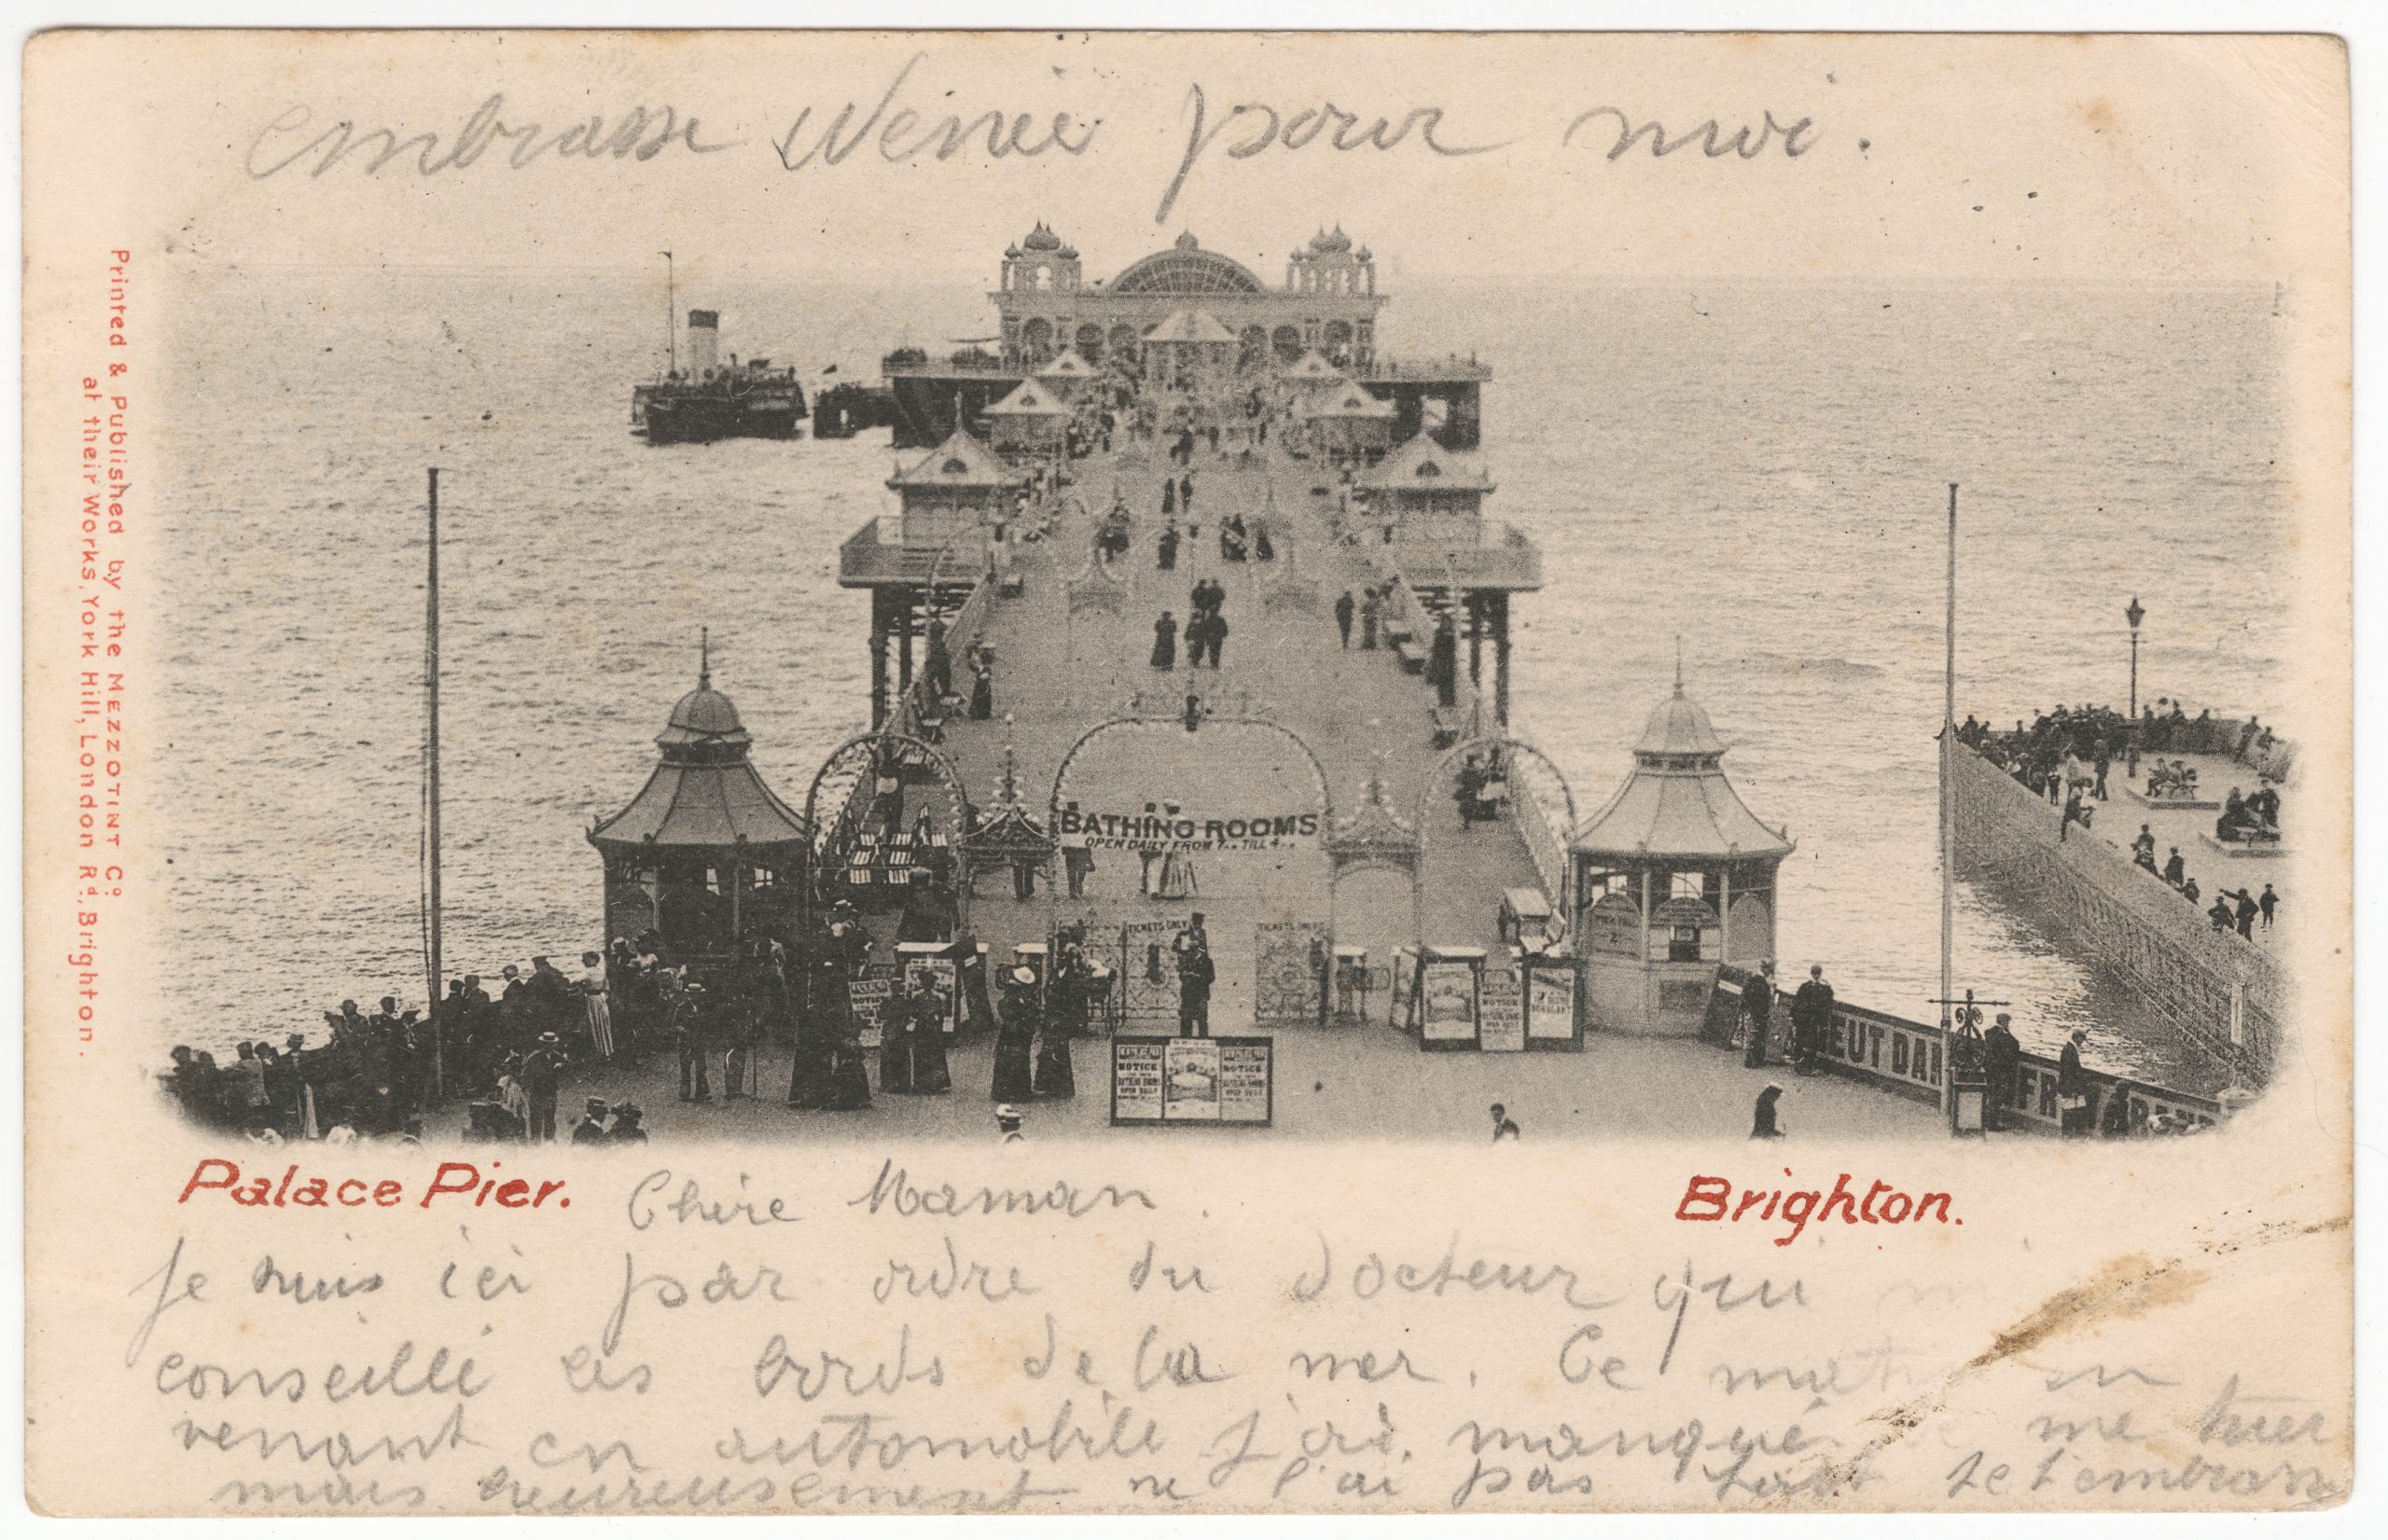 embrasse pour moi.
Printed & Published by the MEZZOTINT Co
at their Works, York Hill, London Rd, Brighton.
BATHING ROOMS
OPEN DAILY FROM 7 TILL 4
TICKETS ONLY
TICKETS ONLY
NOTICE
NOTICE
NOTICE
NOTICE
Palace Pier. Chère Maman.
Brighton.
Je suis ici par ordre du docteur qui
conseillé les bords de la mer. Ce en
venant en automobile j'ai manqué me tuer
mais heureusement ne l'ai pas